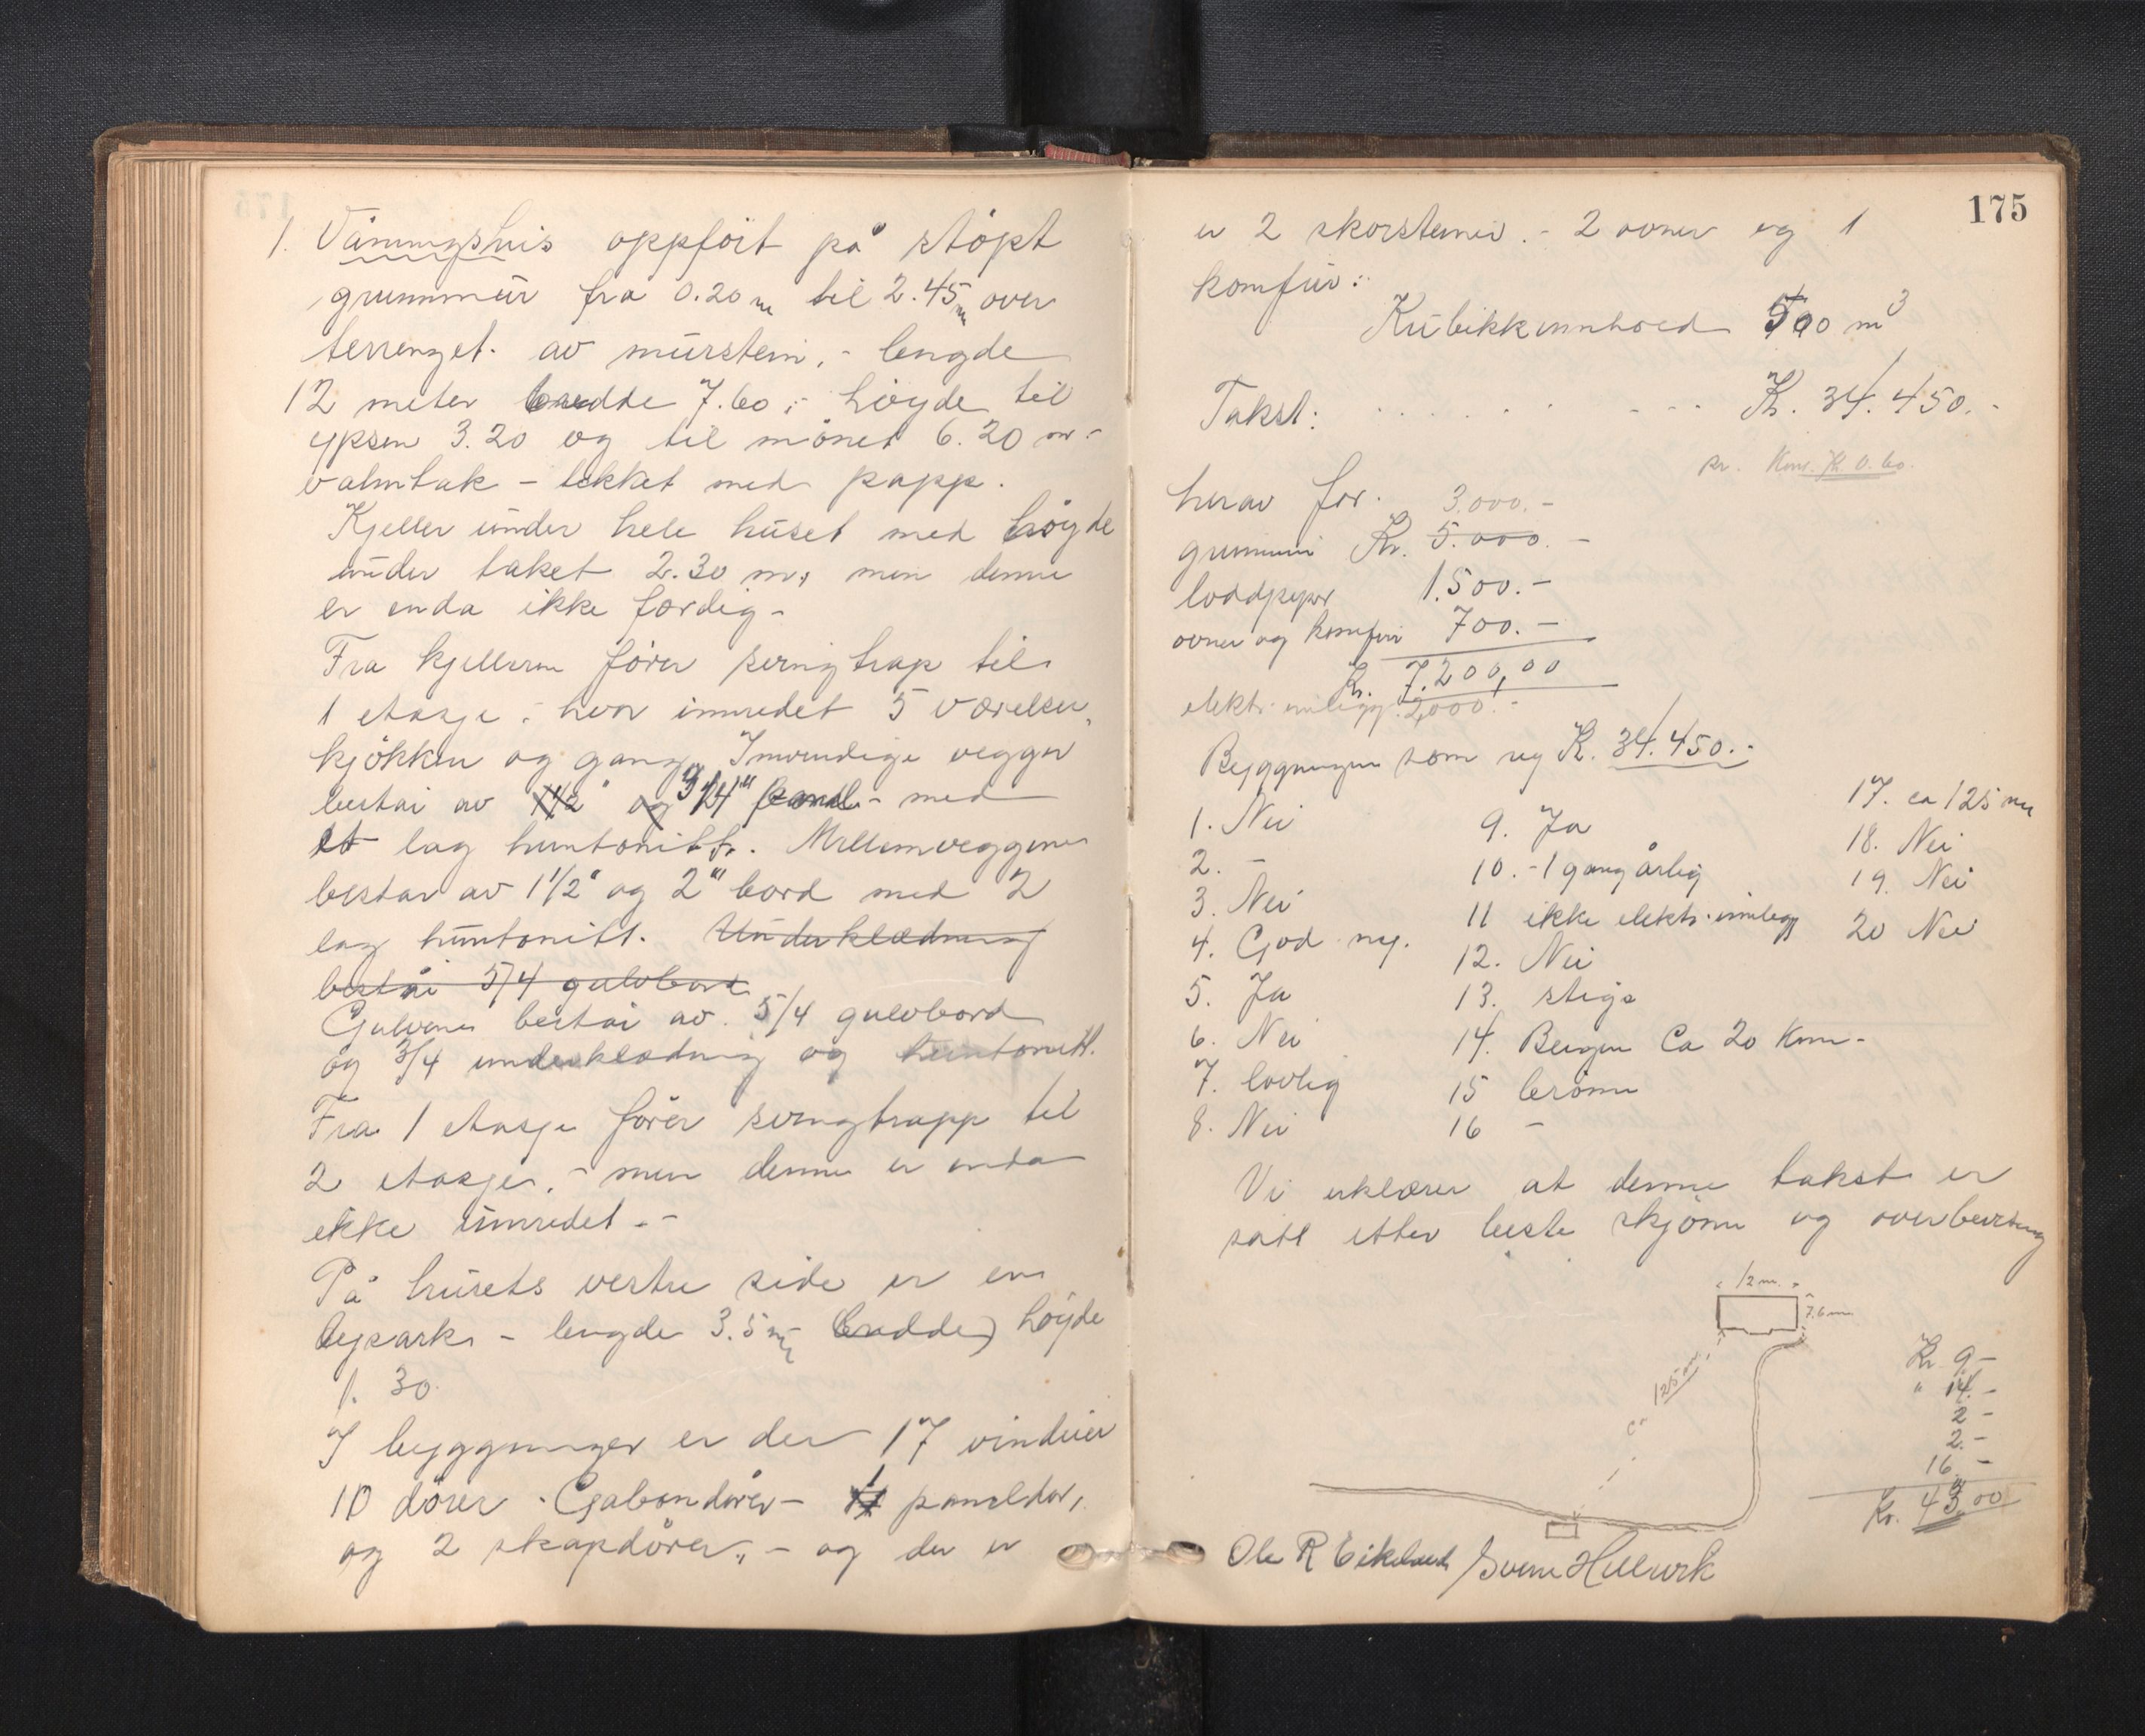 1. Våningshus oppført på støpt
grunnmur fra 0.20 m til 2.45 m over
terrenget. av murstein, - lengde
12 meter bredde 7.60; - høyde til
gesen 3.20 og til mønet 6.20 m. -
valmtak - tekket med papp.
Kjeller under hele huset med høyde
under taket 2.30 m, men denne
er enda ikke færdig -
Fra kjelleren fører svingtrap til
1 etasje, hvor innredet 5 værelser,
kjøkken og gang. Innvendige vegger
består av 1 1/2" og 3/4" panel - med
et lag huntonitt. Mellemveggene
bestar av 1 1/2" og 2" bord med 2
lag huntonitt. Underklædning
består 5/4 gulvbord
Gulvene består av 5/4 gulvbord
og 3/4 underklædning og huntonitt.
Fra 1 etasje fører svingtrapp til
2 etasje, - men denne er enda
ikke innredet. -
På husets vestre side er en
- lengde 3.5 m bredde høyde
1.30
I bygningen er der 17 vinduer
10 dører - Gabondører - 1 paneldør,
og 2 skapdører, - og der er
175
er 2 skorsteiner. - 2 ovner og 1
komfur:
Kubikkinnhold 500 m³
Takst: Kr. 34.450. -
pr. Kr. 0.60.
herav for. 3.000. -
grunnmur Kr. 5.000. -
loddpiper 1.500. -
ovner og komfur 700. -
Kr. 7.200,00
elektr. innlegg. 2,000. -
Byggningen som ny Kr. 34.450. -
1. Nei
2. -
3. Nei
4. God ny.
5. Ja
6. Nei
7. lovlig
8. Nei
9. Ja
10. - 1 gang årlig
11 ikke elektr. innlegg
12. Nei
13. stige
14. Bergen Ca 20 Km -
15 brønn
16 -
17. ca 125 m
18. Nei
19. Nei
20 Nei
Vi erklærer at denne takst er
satt etter beste skjønn og overbevisning
12 m.
7.6 m
ca 125 m
Kr 9 -
" 14. -
2 -
2. -
16 -
Kr. 43,00
Ole R Eikeland Sverre Hellevik